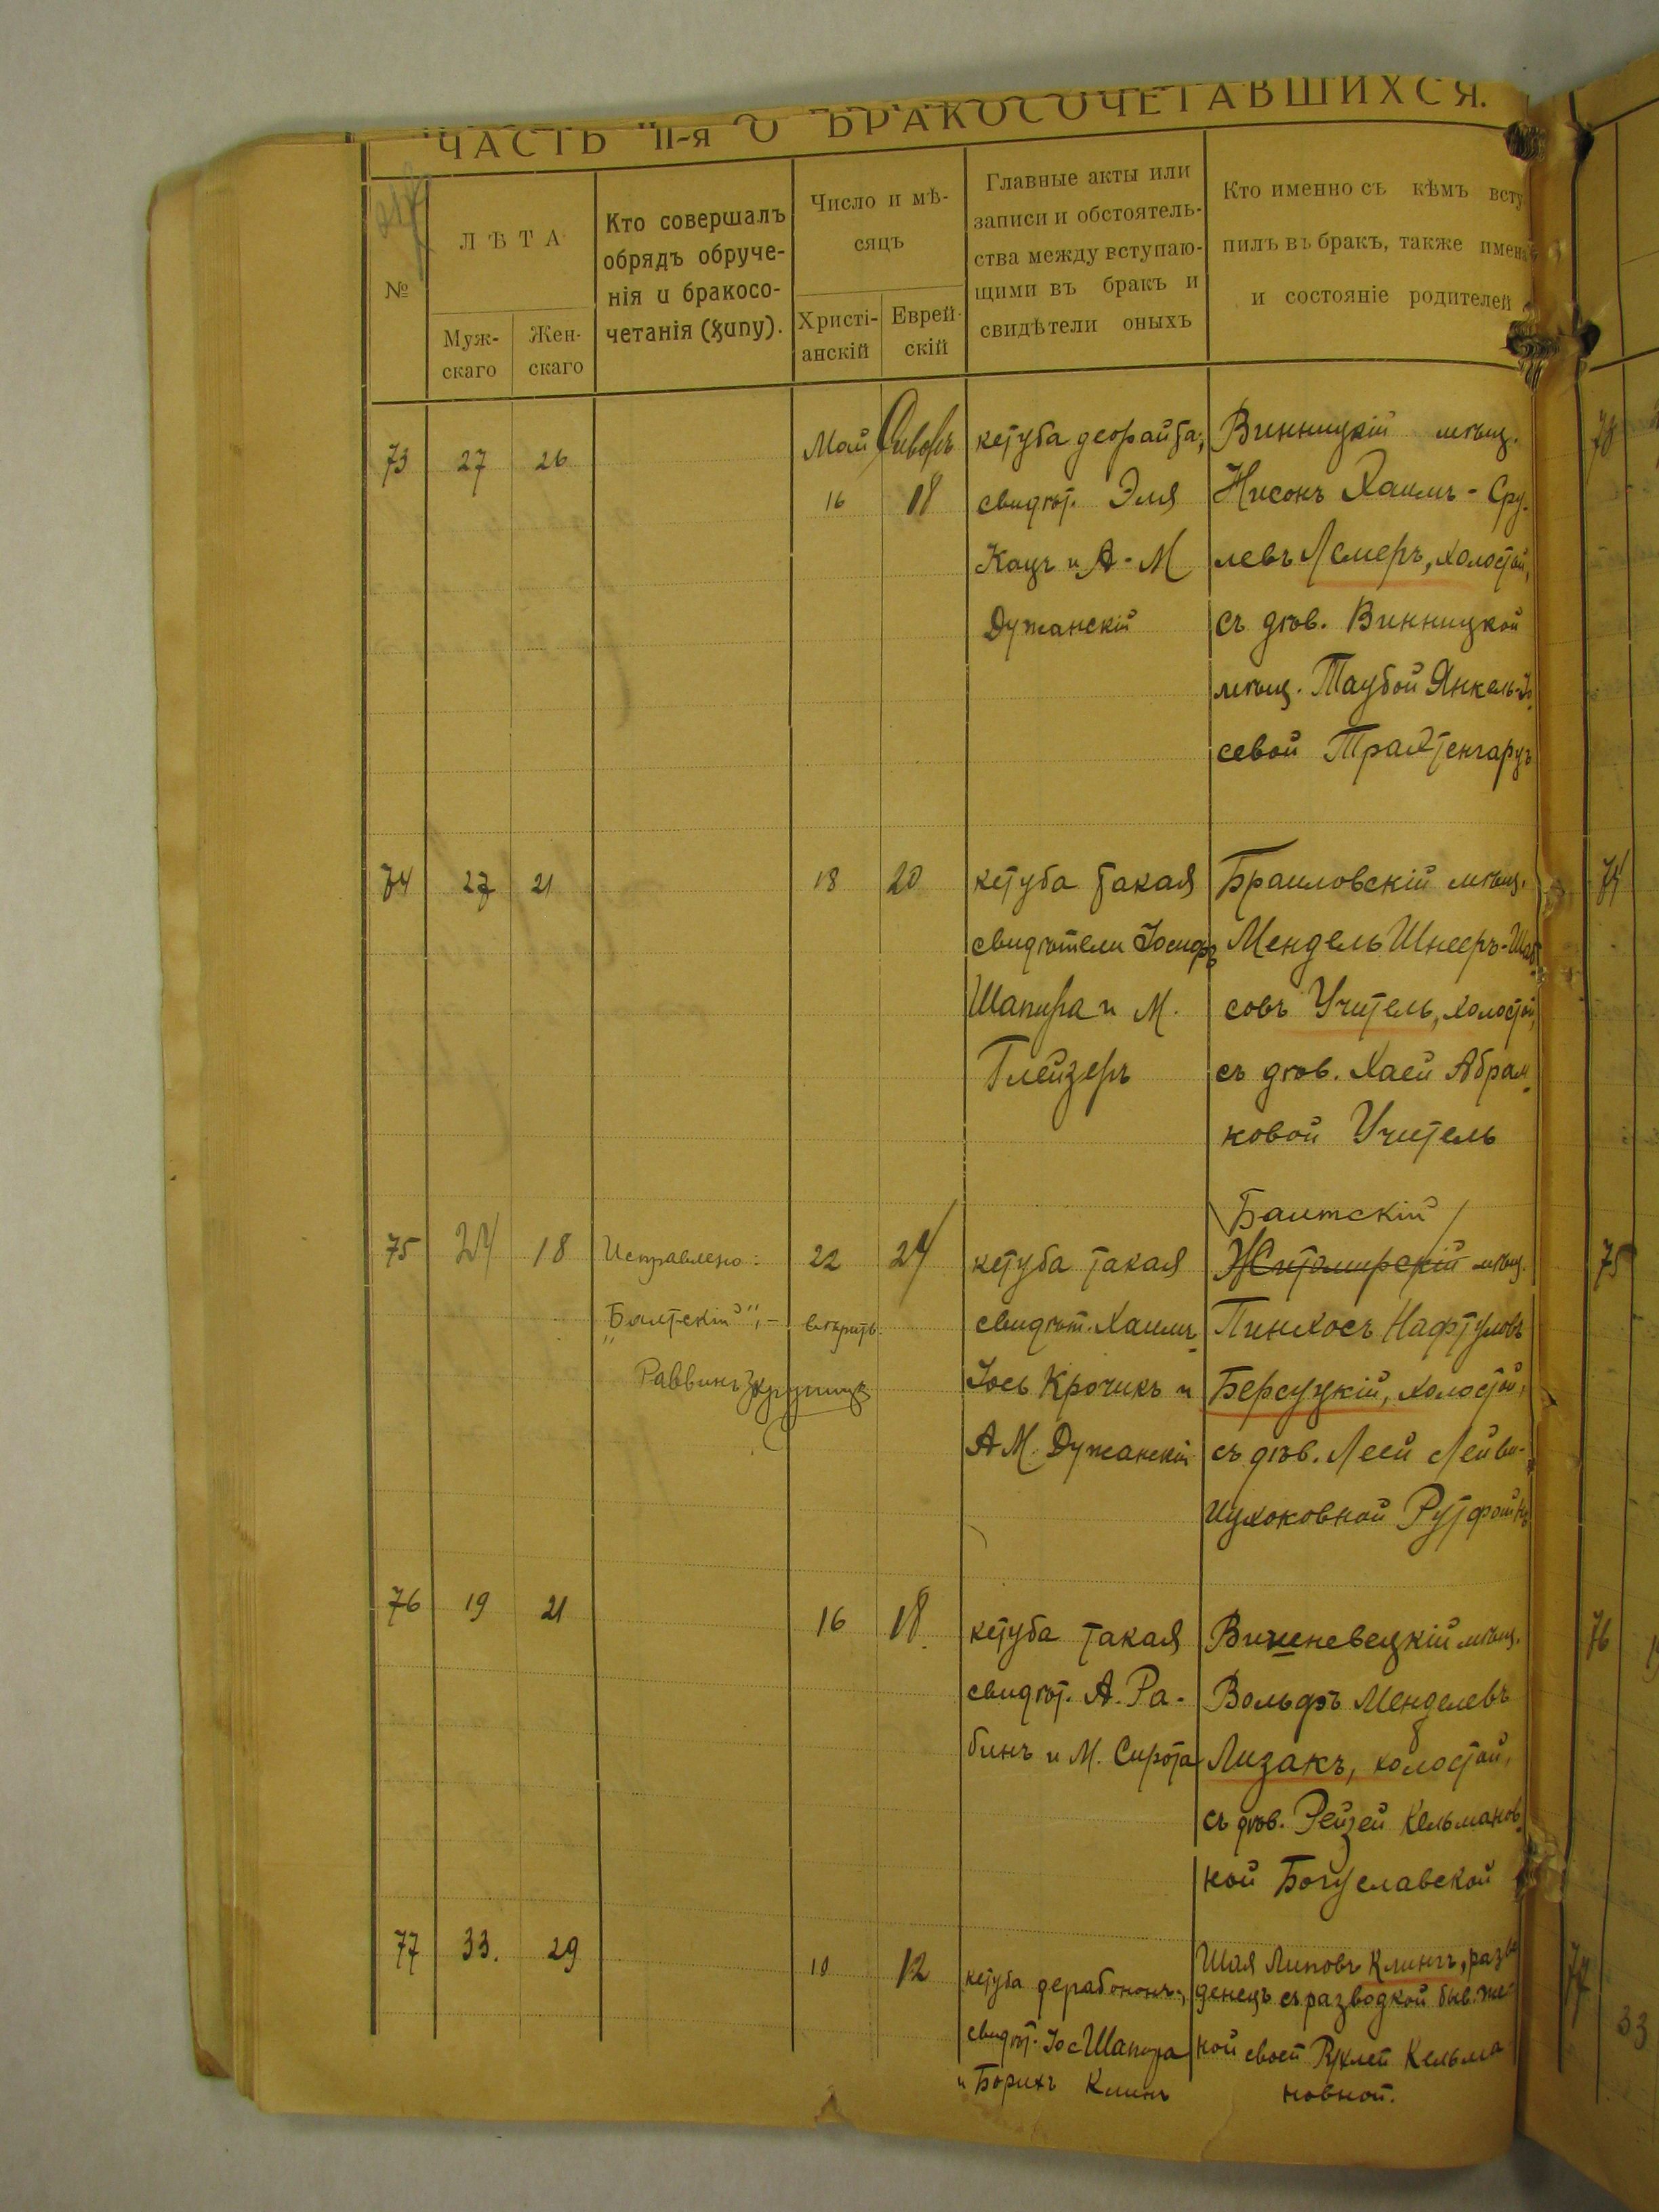 ЧАСТЬ II-я О БРАКОСОЧЕТАВШИХСЯ.
№
ЛѢТА
Муж-
скаго
Жен-
скаго
Кто совершалъ
обрядъ обруче-
нія и бракосо-
четанія (хупу).
Число и мѣ-
сяцъ
Христі-
анскій
Еврей-
скій
Главные акты или
записи и обстоятель-
ства между вступаю-
щими въ бракъ и
свидѣтели оныхъ
Кто именно съ кѣмъ всту
пилъ въ бракъ, также имена
и состояніе родителей
73 27 26 Май Сиворъ
16 18
кетуба деорайта;
свидѣт. Эля
Кацъ и А-М
Дужанскій
Винницкій мѣщ.
Нисонъ Хаимъ-Сру-
левъ Лемеръ, холостой,
съ дѣв. Винницкой
мѣщ. Таубой Янкель-Іо
севой Трахтенгарцъ
74 27 21 18 20
кетуба такая
свидѣтели Іосифъ
Шапира и М.
Глейзеръ
Браиловскій мѣщ.
Мендель Шнееръ-Шаб
совъ Учитель, холостой,
съ дѣв. Хаей Абрам-
ковой Учитель
75 24 18 Исправлено: 22 24
„Балтскій“, – вѣрить.
Раввинъ
кетуба такая
свидѣт. Хаимъ-
Іось Крочикъ и
А М. Дужанскій
Балтскій
Житомирскій мѣщ.
Пинхосъ Нафтуловъ
Берсуцкій, холостой,
съ дѣв. Леей Лейви-
Ицхоковной Рутфайнъ
76 19 21 16 18
кетуба такая
свидѣт. А. Ра-
бинъ и М. Сирота
Вишневецкій мѣщ.
Вольфъ Менделевъ
Лизакъ, холостой,
съ дѣв. Рейзей Кельманов-
ной Богуславской
77 33. 29 10 12
кетуба дерабононъ;
свидѣт. Іос Шапира
и Борихъ Клинъ
Шая Липовъ Клингъ, разве
денецъ съ разводкой быв. же
ной своей Рухлей Кельма
новной.
73
74
75
76
77
33